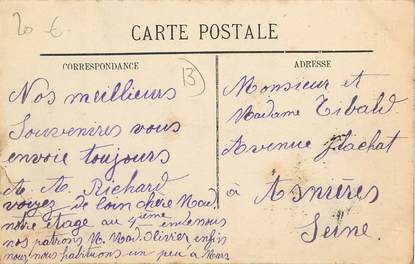 20 €
CARTE POSTALE
CORRESPONDANCE
13
ADRESSE
Nos meilleurs
Souvenires vous
envoie toujours
A. A. Richard
voyez de loin chère Mad.
notre étage au 4ième
nos patrons M. Mad. Olivier enfin
nous nous habitions un peu à
Monsieur et
Madame Tibald.
Avenue Flachat
à Asnières
Seine.